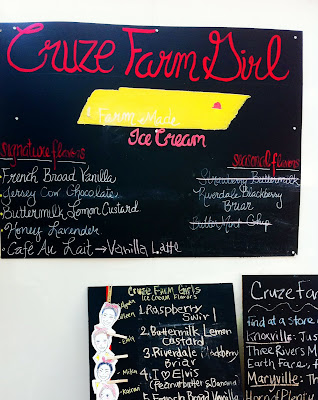 Cruze Farm Girl
Farm Made
Ice Cream
signature flavors
French Broad Vanilla
Jersey Cow Chocolate
Buttermilk Lemon Custard
Honey Lavender
Cafe Au Lait → Vanilla Latte
seasonal flavors
Strawberry Buttermilk
Riverdale Blackberry
Briar
ButterMint Chip
Cruze Farm Girls
Ice Cream Flavors
1. Raspberry
Swirl
2. Buttermilk Lemon
Custard
3. Riverdale Blackberry
Briar
4. I ♡ Elvis
(Peanutbutter & Banana
5. French Broad Vanilla
Cruze Fa
find at a store
Knoxville: Jus
Three Rivers M
Earth Fare,
Maryville: Th
Horn of Plenty